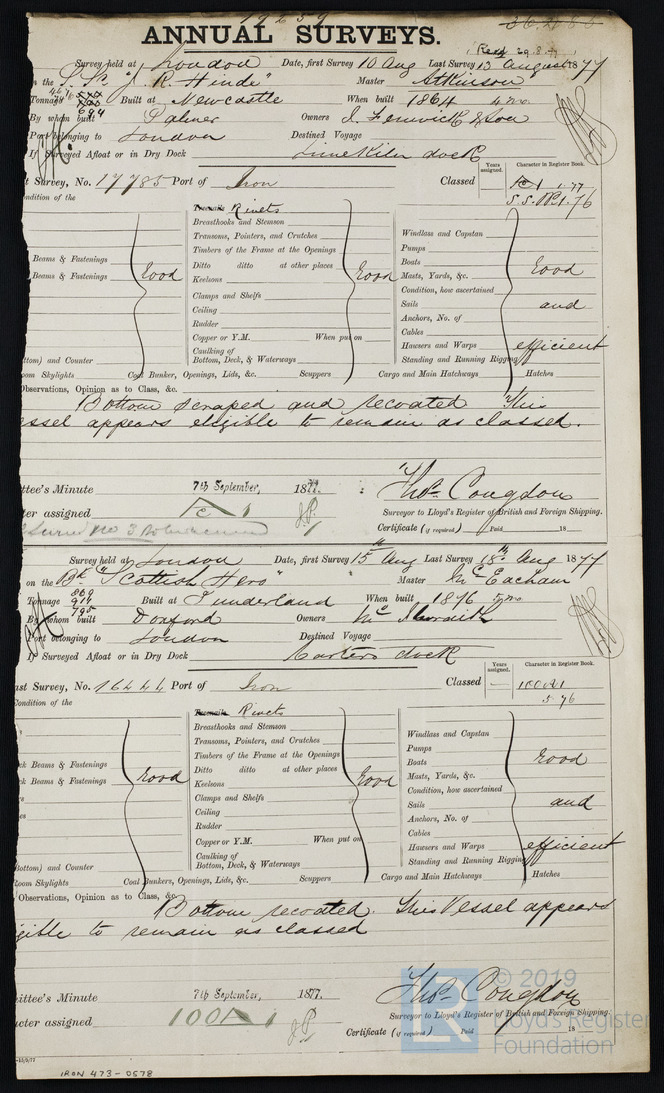 19639
ANNUAL SURVEYS.
Recd 29.8.77
Survey held at London Date, first Survey 10 Aug Last Survey 13 August 1877
on the S.S. "J. R. Hinde" Master Atkinson
Tonnage 694 Built at Newcastle When built 1864 4 mo.
By whom built Palmer Owners J. Fenwick & Son
Port belonging to London Destined Voyage
If Surveyed Afloat or in Dry Dock Limekiln dock
Years assigned. Character in Register Book.
t Survey, No. 17785 Port of Iron Classed 1.77
S.S. No.1.76
ondition of the
Treenails Rivets
Breasthooks and Stemson
Transoms, Pointers, and Crutches
Timbers of the Frame at the Openings
Ditto ditto at other places
Keelsons
Clamps and Shelfs
Ceiling
Rudder
Copper or Y.M. When put on
Caulking of Bottom, Deck, & Waterways
Beams & Fastenings
Beams & Fastenings
Good
Good
Windlass and Capstan
Pumps
Boats
Masts, Yards, &c.
Condition, how ascertained
Sails
Anchors, No. of
Cables
Hawsers and Warps
Standing and Running Rigging
Good
and
efficient
ttom) and Counter
oom Skylights Coal Bunker, Openings, Lids, &c. Scuppers Cargo and Main Hatchways Hatches
Observations, Opinion as to Class, &c.
Bottom scraped and recoated This
essel appears eligible to remain as classed.
ttee's Minute 7th September, 1877.
Thos. Congdon
ter assigned
Surveyor to Lloyd's Register of British and Foreign Shipping.
Certificate (if required) Paid 18
Survey held at London Date, first Survey 15th Aug Last Survey 15th Aug 1877
on the Bk "Scottish Hero" Master McEacharn
Tonnage 869 917 795 Built at Sunderland When built 1876 5 mo
By whom built Doxford Owners
Port belonging to London Destined Voyage
If Surveyed Afloat or in Dry Dock Carters dock
Years assigned. Character in Register Book.
ast Survey, No. 16444 Port of Iron Classed — 100A1
5 76
Condition of the
Treenails Rivets
Breasthooks and Stemson
Transoms, Pointers, and Crutches
Timbers of the Frame at the Openings
Ditto ditto at other places
Keelsons
Clamps and Shelfs
Ceiling
Rudder
Copper or Y.M. When put on
Caulking of Bottom, Deck, & Waterways
ck Beams & Fastenings
k Beams & Fastenings
Good
Good
Windlass and Capstan
Pumps
Boats
Masts, Yards, &c.
Condition, how ascertained
Sails
Anchors, No. of
Cables
Hawsers and Warps
Standing and Running Rigging
Good
and
efficient
Bottom) and Counter
Room Skylights Coal Bunkers, Openings, Lids, &c. Scuppers Cargo and Main Hatchways Hatches
Observations, Opinion as to Class, &c.
Bottom recoated. This Vessel appears
gible to remain as classed
ittee's Minute 7th September, 1877.
Thos. Congdon
ucter assigned 100A1
Surveyor to Lloyd's Register of British and Foreign Shipping.
Certificate (if required) Paid 18
© 2019
Lloyd's Register
Foundation
IRON 473-0578